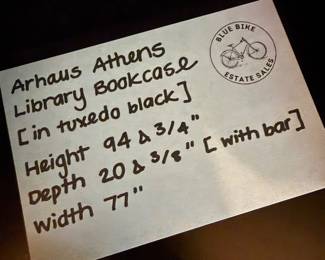 Arhaus Athens
Library Bookcase
[in tuxedo black]
Height 94 & 3/4"
Depth 20 & 3/8" [with bar]
Width 77"
BLUE BIKE
ESTATE SALES